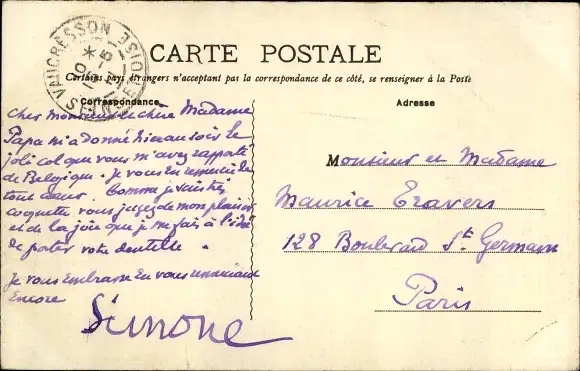 VAUCRESSON
SEINE-ET-OISE
CARTE POSTALE
Certains pays étrangers n'acceptant pas la correspondance de ce côté, se renseigner à la Poste
Correspondance
Adresse
Cher Monsieur et chère Madame
Papa m'a donné hier au soir le
joli col que vous m'avez rapporté
de Belgique. Je vous en remercie de
tout cœur. Comme je suis très
coquette vous jugez de mon plaisir
et de la joie que je me fais à l'idée
de porter votre dentelle.
Je vous embrasse en vous remerciant
encore
Simone
Monsieur et Madame
Maurice Travers
128 Boulevard St. Germain
Paris